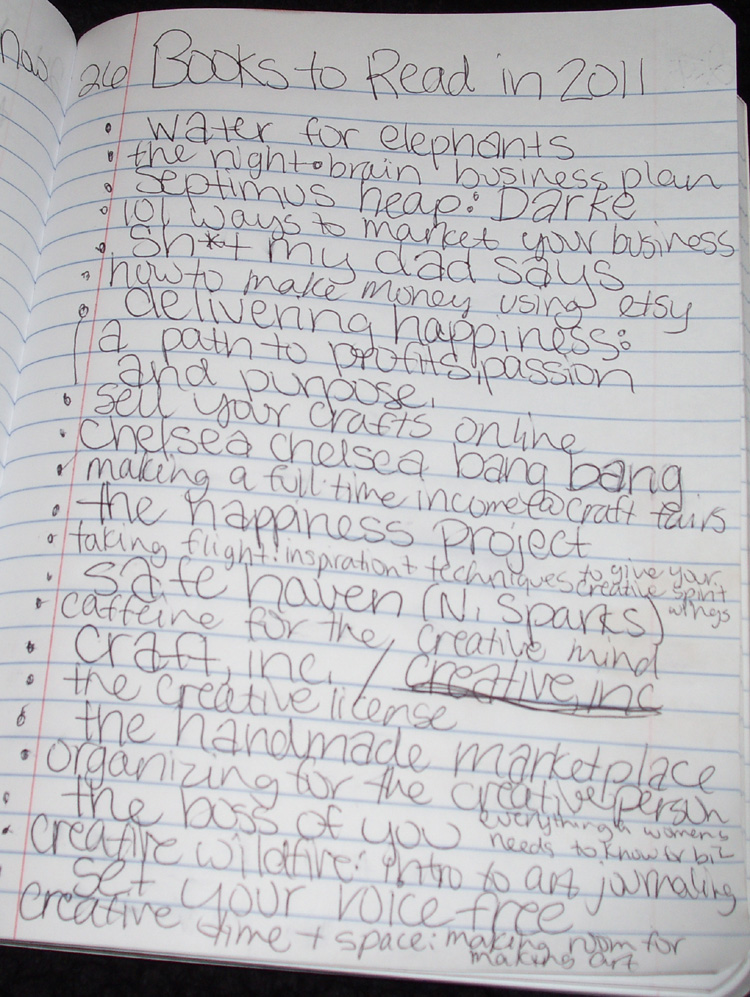 Nov 26 Books to Read in 2011
• water for elephants
• the right-brain business plan
• septimus heap: Darke
• 101 ways to market your business
• Sh*t my dad says
• how to make money using etsy
• delivering happiness:
a path to profits, passion
and purpose.
• sell your crafts online
• chelsea chelsea bang bang
• making a full-time income @ craft fairs
• the happiness project
• taking flight: inspiration + techniques to give your
creative spirit
wings
• safe haven (N. Sparks)
• caffeine for the creative mind
• craft, inc. / creative, inc
• the creative license
• the handmade marketplace
• organizing for the creative person
• the boss of you everything a womens
needs to know
• creative wildfire: intro to art journaling
set your voice free
creative time + space: making room for
making art